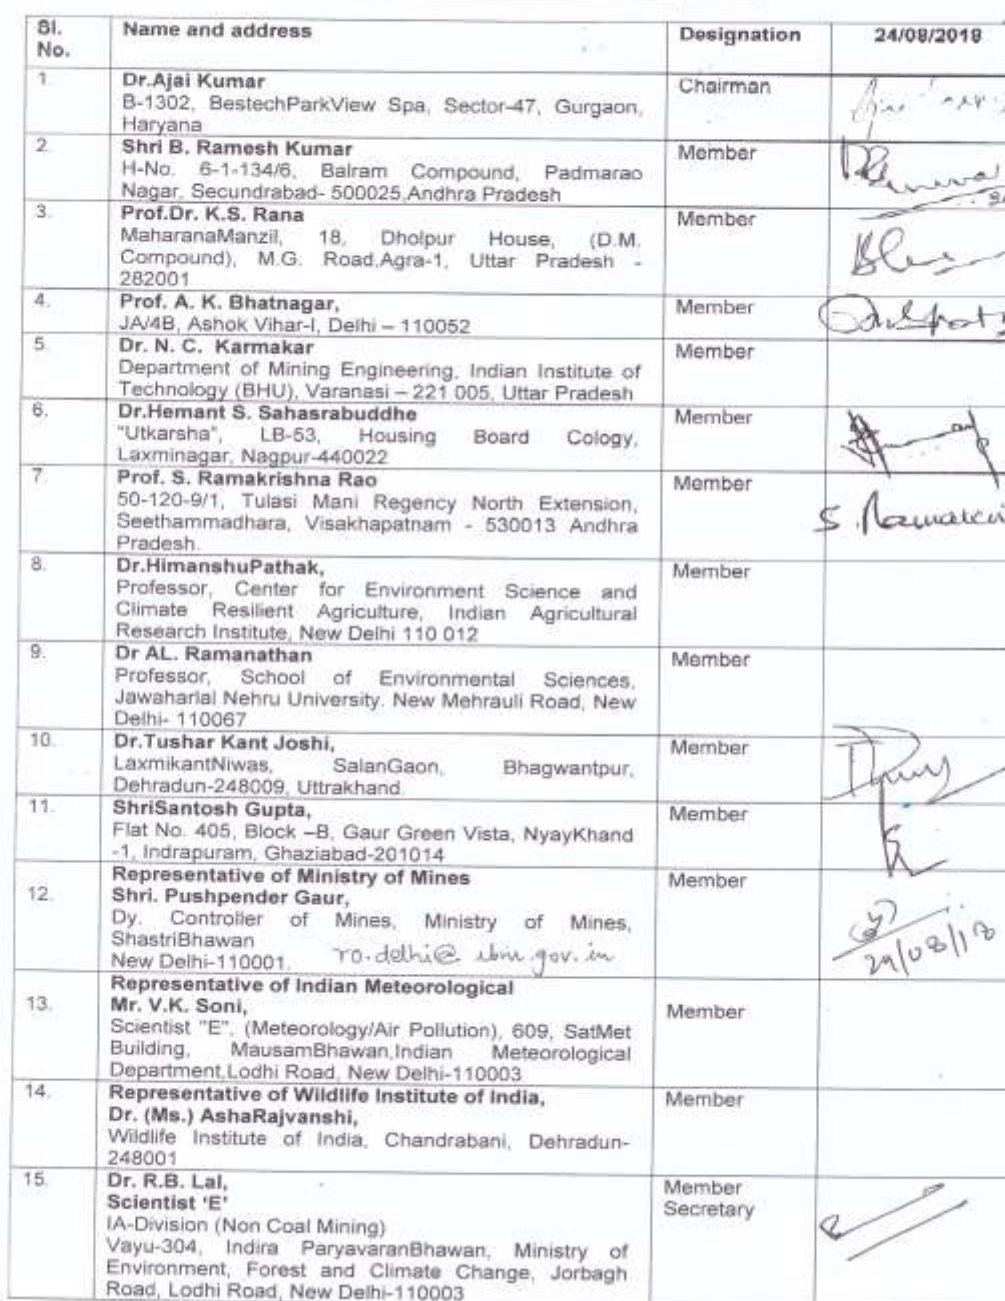 Sl. No. Name and address Designation 24/08/2018
1. Dr.Ajai Kumar Chairman
B-1302, BestechParkView Spa, Sector-47, Gurgaon,
Haryana
2. Shri B. Ramesh Kumar Member
H-No. 6-1-134/6, Balram Compound, Padmarao
Nagar, Secundrabad- 500025,Andhra Pradesh
3. Prof.Dr. K.S. Rana Member
MaharanaManzil, 18, Dholpur House, (D.M.
Compound), M.G. Road,Agra-1, Uttar Pradesh -
282001
4. Prof. A. K. Bhatnagar, Member
JA/4B, Ashok Vihar-I, Delhi – 110052
5. Dr. N. C. Karmakar Member
Department of Mining Engineering, Indian Institute of
Technology (BHU), Varanasi – 221 005, Uttar Pradesh
6. Dr.Hemant S. Sahasrabuddhe Member
"Utkarsha", LB-53, Housing Board Cology,
Laxminagar, Nagpur-440022
7. Prof. S. Ramakrishna Rao Member
50-120-9/1, Tulasi Mani Regency North Extension,
Seethammadhara, Visakhapatnam - 530013 Andhra
Pradesh.
8. Dr.HimanshuPathak, Member
Professor, Center for Environment Science and
Climate Resilient Agriculture, Indian Agricultural
Research Institute, New Delhi 110 012
9. Dr AL. Ramanathan Member
Professor, School of Environmental Sciences,
Jawaharlal Nehru University. New Mehrauli Road, New
Delhi- 110067
10. Dr.Tushar Kant Joshi, Member
LaxmikantNiwas, SalanGaon, Bhagwantpur,
Dehradun-248009, Uttrakhand
11. ShriSantosh Gupta, Member
Flat No. 405, Block –B, Gaur Green Vista, NyayKhand
-1, Indrapuram, Ghaziabad-201014
Representative of Ministry of Mines Member
12. Shri. Pushpender Gaur,
Dy. Controller of Mines, Ministry of Mines,
ShastriBhawan
New Delhi-110001. ro.delhi@ibm.gov.in
Representative of Indian Meteorological
13. Mr. V.K. Soni, Member
Scientist "E", (Meteorology/Air Pollution), 609, SatMet
Building, MausamBhawan,Indian Meteorological
Department,Lodhi Road, New Delhi-110003
14. Representative of Wildlife Institute of India, Member
Dr. (Ms.) AshaRajvanshi,
Wildlife Institute of India, Chandrabani, Dehradun-
248001
15. Dr. R.B. Lal, Member
Scientist 'E' Secretary
IA-Division (Non Coal Mining)
Vayu-304, Indira ParyavaranBhawan, Ministry of
Environment, Forest and Climate Change, Jorbagh
Road, Lodhi Road, New Delhi-110003